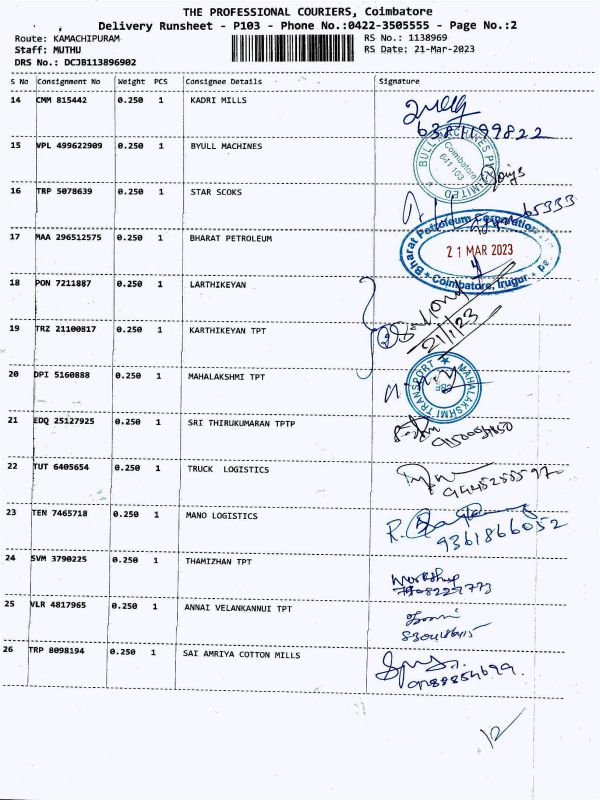 THE PROFESSIONAL COURIERS, Coimbatore
Delivery Runsheet - P103 - Phone No.:0422-3505555 - Page No.:2
Route: KAMACHIPURAM
RS No.: 1138969
Staff: MUTHU
RS Date: 21-Mar-2023
DRS No.: DCJB113896902
S No Consignment No Weight PCS Consignee Details Signature
14 CMM 815442 0.250 1 KADRI MILLS
15 VPL 499622909 0.250 1 BYULL MACHINES
BULL MACHINES
Coimbatore
641 103
LIMITED
16 TRP 5078639 0.250 1 STAR SCOKS
65333
17 MAA 296512575 0.250 1 BHARAT PETROLEUM
Bharat Petroleum Corporation
21 MAR 2023
Coimbatore, Irugur
18 PON 7211887 0.250 1 LARTHIKEYAN
19 TRZ 21100817 0.250 1 KARTHIKEYAN TPT
20 DPI 5160888 0.250 1 MAHALAKSHMI TPT
MAHALAKSHMI TRANSPORT
CBE
21 EDQ 25127925 0.250 1 SRI THIRUKUMARAN TPTP
22 TUT 6405654 0.250 1 TRUCK LOGISTICS
23 TEN 7465718 0.250 1 MANO LOGISTICS
9361866052
24 SVM 3790225 0.250 1 THAMIZHAN TPT
25 VLR 4817965 0.250 1 ANNAI VELANKANNUI TPT
26 TRP 8098194 0.250 1 SAI AMRIYA COTTON MILLS